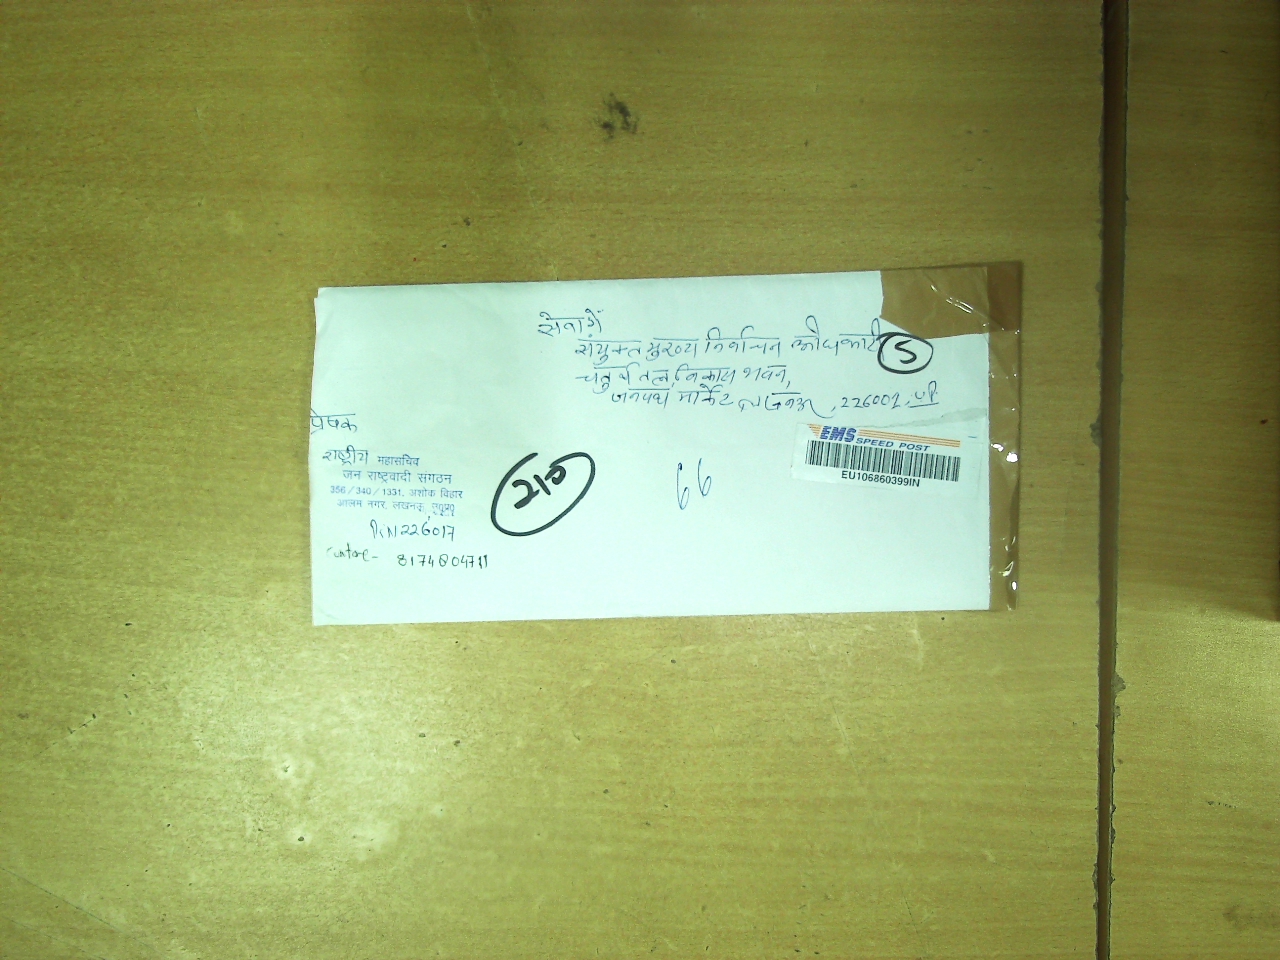 सेवा में
संयुक्त मुख्य निर्वाचन अधिकारी
5
चतुर्थ तल, विकास भवन,
जनपथ मार्केट लखनऊ, 226001, UP
EMS SPEED POST
EU106860399IN
प्रेषक
राष्ट्रीय महासचिव
जन राष्ट्रवादी संगठन
356/340/1331, अशोक विहार
आलम नगर, लखनऊ, उ०प्र०
PIN 226017
210
66